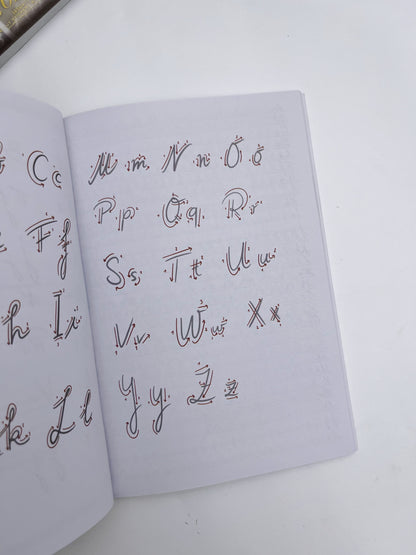 C c
F f
h I i
k L l
M m N n O o
P p Q q R r
S s T t U u
V v W w X x
Y y Z z